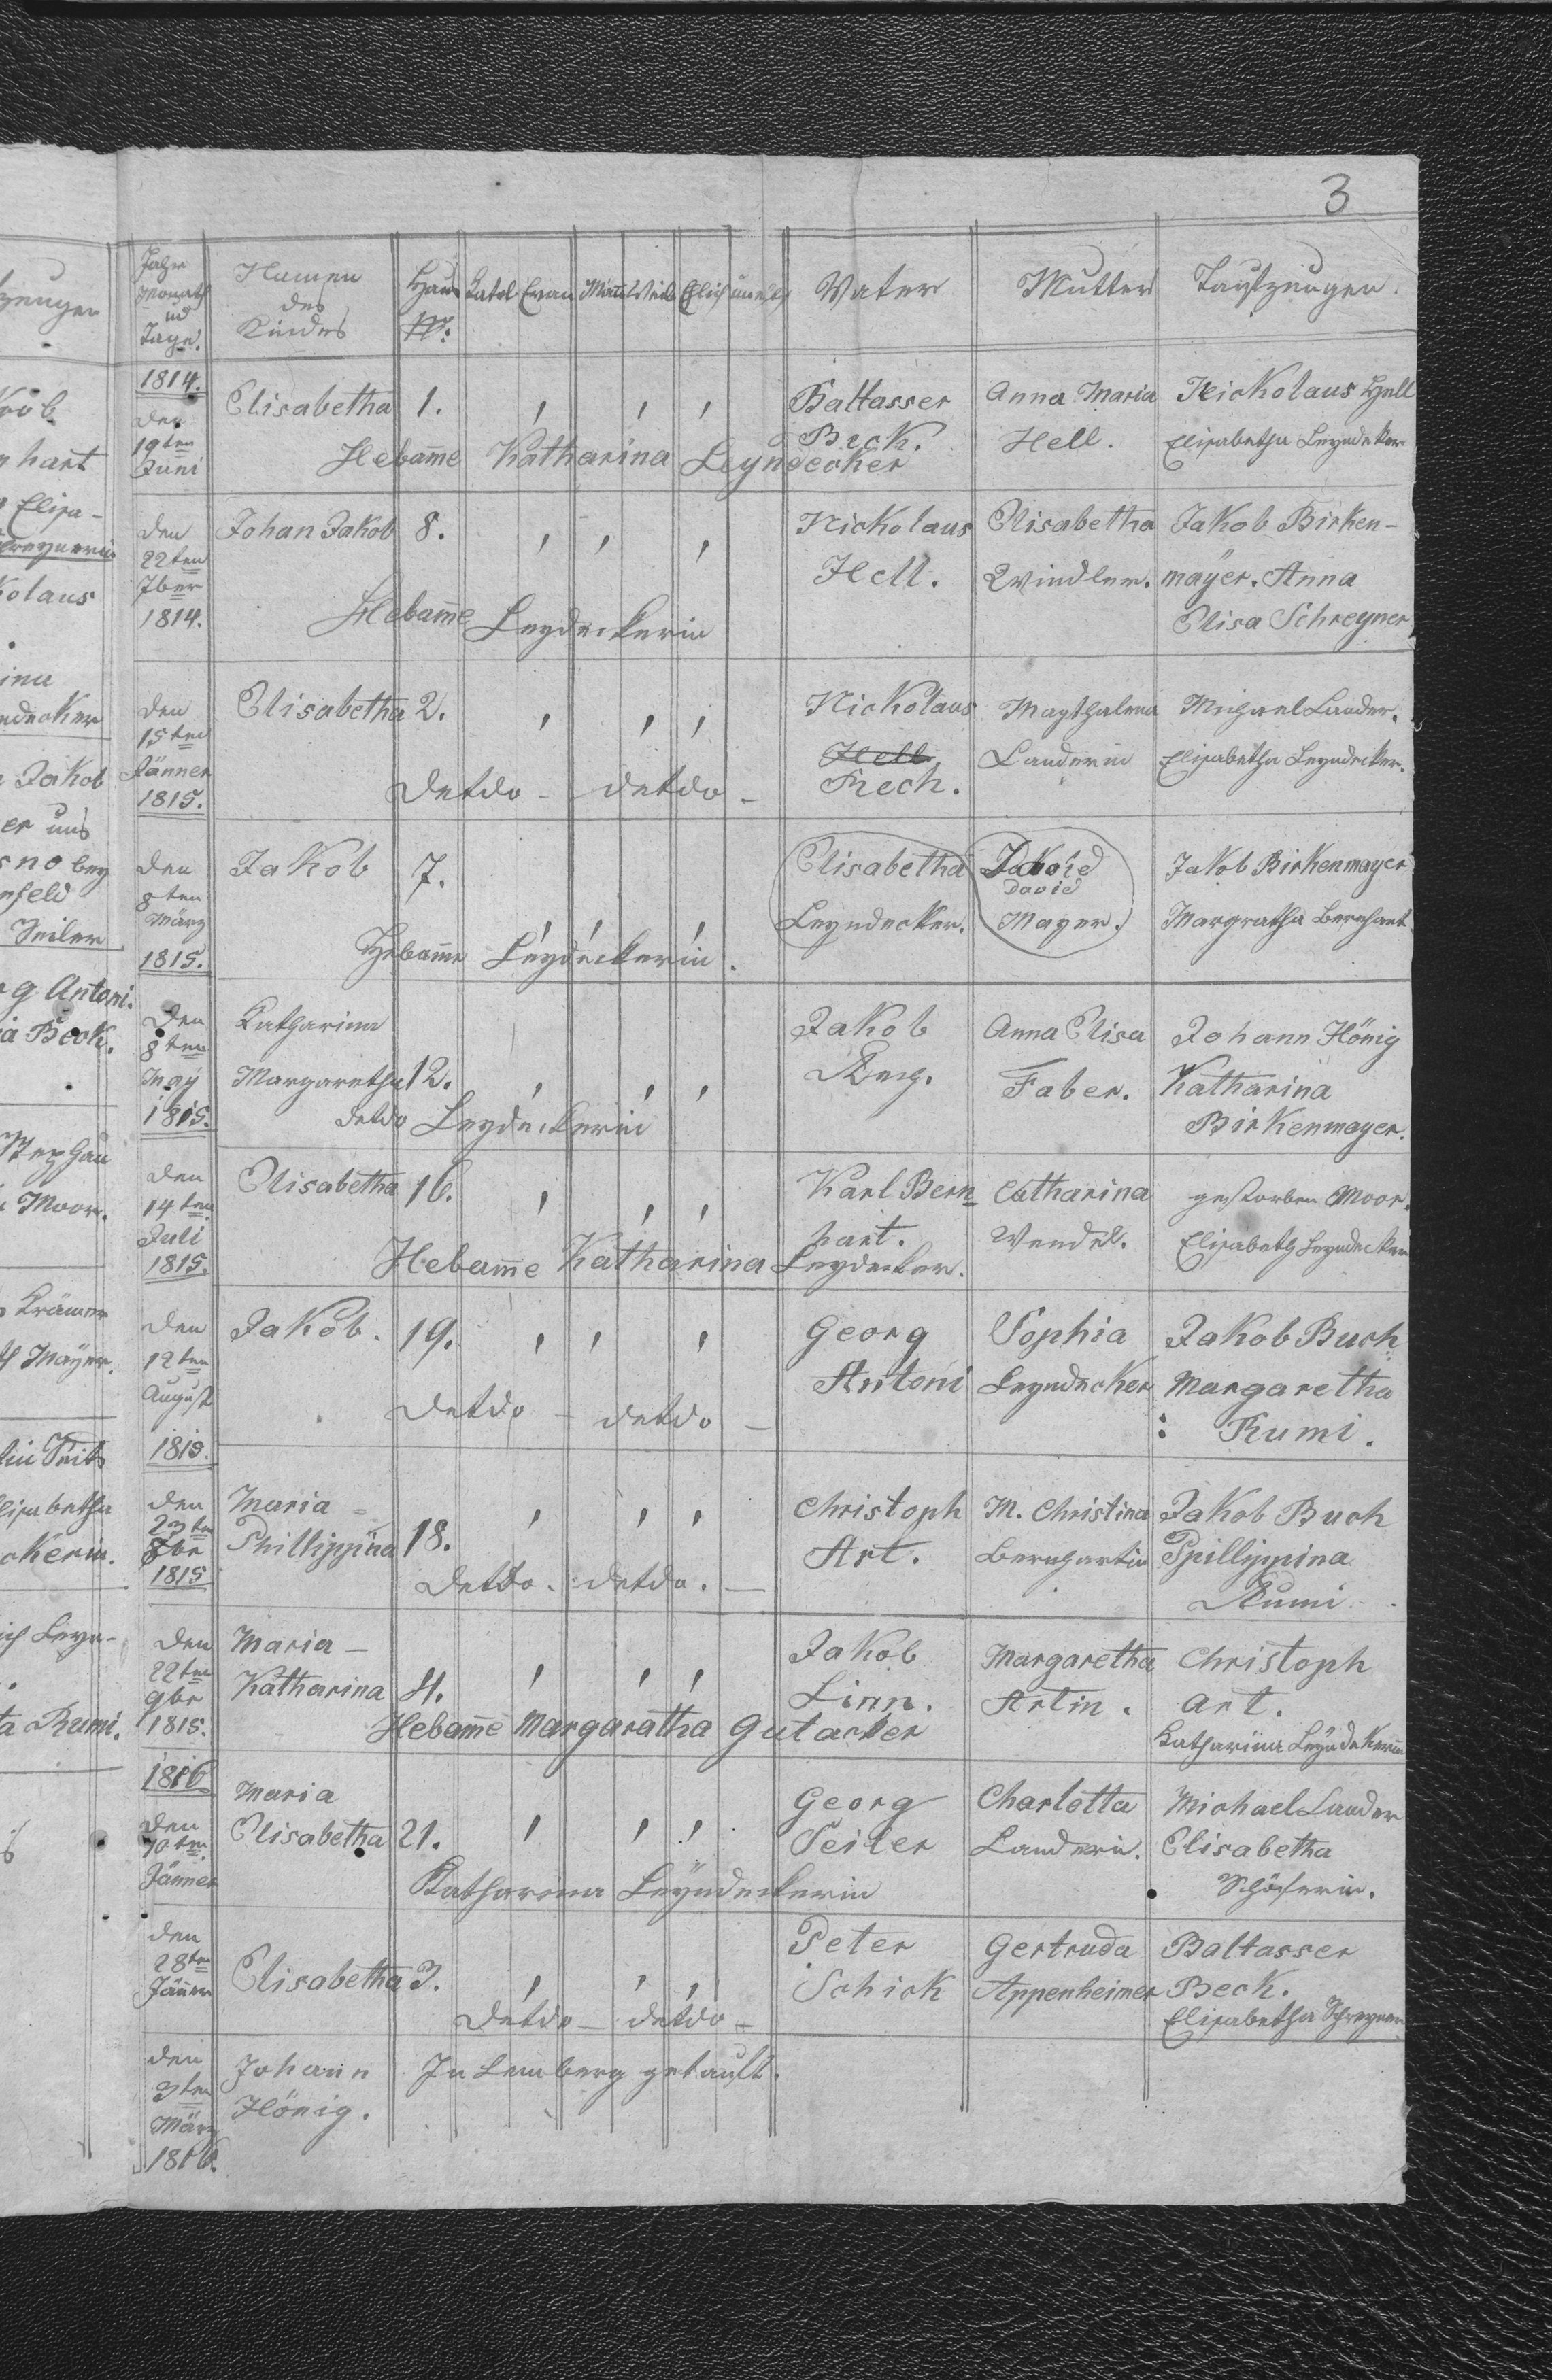 3
Jahr Monath und Tage.
Namen des Kindes
Haus Nr.
Katol
Evan
Mänl
Weib
Ehlich
unehl
Vater
Mutter
Taufzeugen.
1814.
den 19ten Juni
Elisabetha 1.
Baltasser Beck.
Anna Maria Hell.
Nickolaus Hell
Elisabetha Leyndeker
Hebame Katharina Leyndecker
den 22ten 7ber 1814.
Johan Jakob 8.
Nickolaus Hell.
Elisabetha Windler.
Jakob Birken-
mayer. Anna
Elisa Schreyner
Hebame Leydeckerin
den 15ten Jänner 1815.
Elisabetha 2.
Nickolaus Hell Rech.
Magthalena Lauderin
Michael Lauder.
Elisabetha Leyndecker.
Detdo - detdo -
den 8ten März 1815.
Jakob 7.
Elisabetha Leyndecker.
David Mayer.
Jakob Birkenmayer
Margratha Bernhart
Hebame Leydeckerin.
den 8ten May 1815.
Katharina Margaretha 12.
Jakob Rech.
Anna Elisa Faber.
Johann Hönig
Katharina
Birkenmayer.
detdo Leydeckerin
den 14ten Juli 1815.
Elisabetha 16.
Karl Bern=
hart.
Catharina Wendel.
gestorben Moor.
Elisabeth Leyndecker
Hebame Katharina Leydecker.
den 12ten August 1815.
Jakob. 19.
Georg Antoni
Sophia Leyndecker
Jakob Buch
Margaretha
Rumi.
Detdo - detdo -
den 23ten 8br 1815
Maria = Phillippina 18.
Christoph Art.
M. Christina Bernhartin
Jakob Buch
Phillippina
Rumi.
Detdo. detdo. -
den 22ten 9br 1815.
Maria - Katharina 4.
Jakob Linn.
Margaretha Artin.
Christoph
Art.
Katharina Leyndekerin
Hebame Margaratha Gutacker
1816
den 10ten Jänner
Maria Elisabetha 21.
Georg Seiler
Charlotta Lauderin.
Michael Lauder
Elisabetha
Schäferin.
Katharina Leyndeckerin
den 28ten Jänner
Elisabetha 3.
Peter Schick
Gertruda Appenheimer
Baltasser
Beck.
Elisabetha Schreyner
Detdo - detdo -
den 3ten März 1816.
Johann Hönig.
In Lemberg getauft.